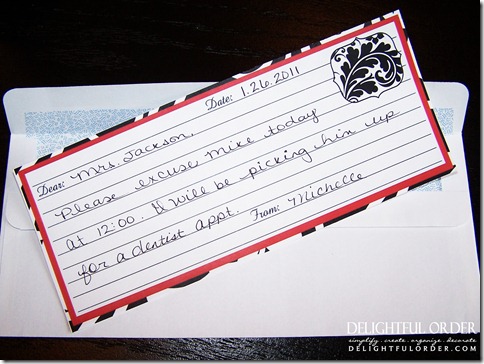 Date: 1.26.2011
Dear: Mrs. Jackson,
Please excuse Mike today
at 12:00. I will be picking him up
for a dentist appt. From: Michelle
DELIGHTFUL ORDER
simplify . create . organize . decorate
DELIGHTFULORDER.COM